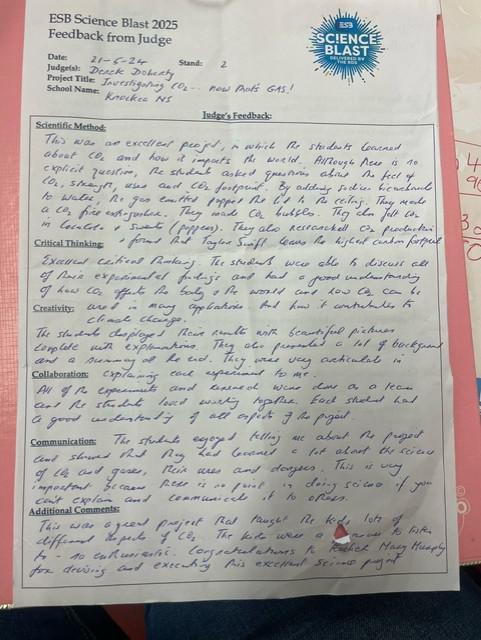 ESB Science Blast 2025
Feedback from Judge
ESB
SCIENCE
BLAST
DELIVERED BY
THE RDS
Date: 21-6-24 Stand: 2
Judge(s): Derek Doherty
Project Title: Investigating CO2... now that's GAS!
School Name: Knockea NS
Judge's Feedback:
Scientific Method:
This was an excellent project, in which the students learned
about CO2 and how it impacts the world. Although there is no
explicit question, the students asked questions about the feel of
CO2, strength, uses and CO2 footprint. By adding sodium bicarbonate
to water, the gas emitted popped the lid to the ceiling. They made
a CO2 fire extinguisher. They made CO2 bubbles. They also felt CO2
in + sweets (poppers). They also researched CO2 production
+ found that Taylor Swift leaves the highest carbon footprint
Critical Thinking:
Excellent critical thinking. The students were able to discuss all
of their experimental findings and had a good understanding
of how CO2 affects the body + the world and how CO2 can be
used in many applications. And how it contributes to
climate change.
Creativity:
The students displayed their results with beautiful pictures
complete with explanations. They also presented a lot of background
and a summary at the end. They were very articulate in
explaining each experiment to me.
Collaboration:
All of the experiments and research were done as a team
and the students loved working together. Each student had
a good understanding of all aspects of the project.
Communication: The students enjoyed telling me about the project
and showed that they had learned a lot about the science
of CO2 and gases, their uses and dangers. This is very
important because there is no point in doing science if you
can't explain and communicate it to others.
Additional Comments:
This was a great project that taught the kids lots of
different aspects of CO2. The kids were a to listen
to - so enthusiastic. Congratulations to teacher Mary Murphy
for devising and executing this excellent science project